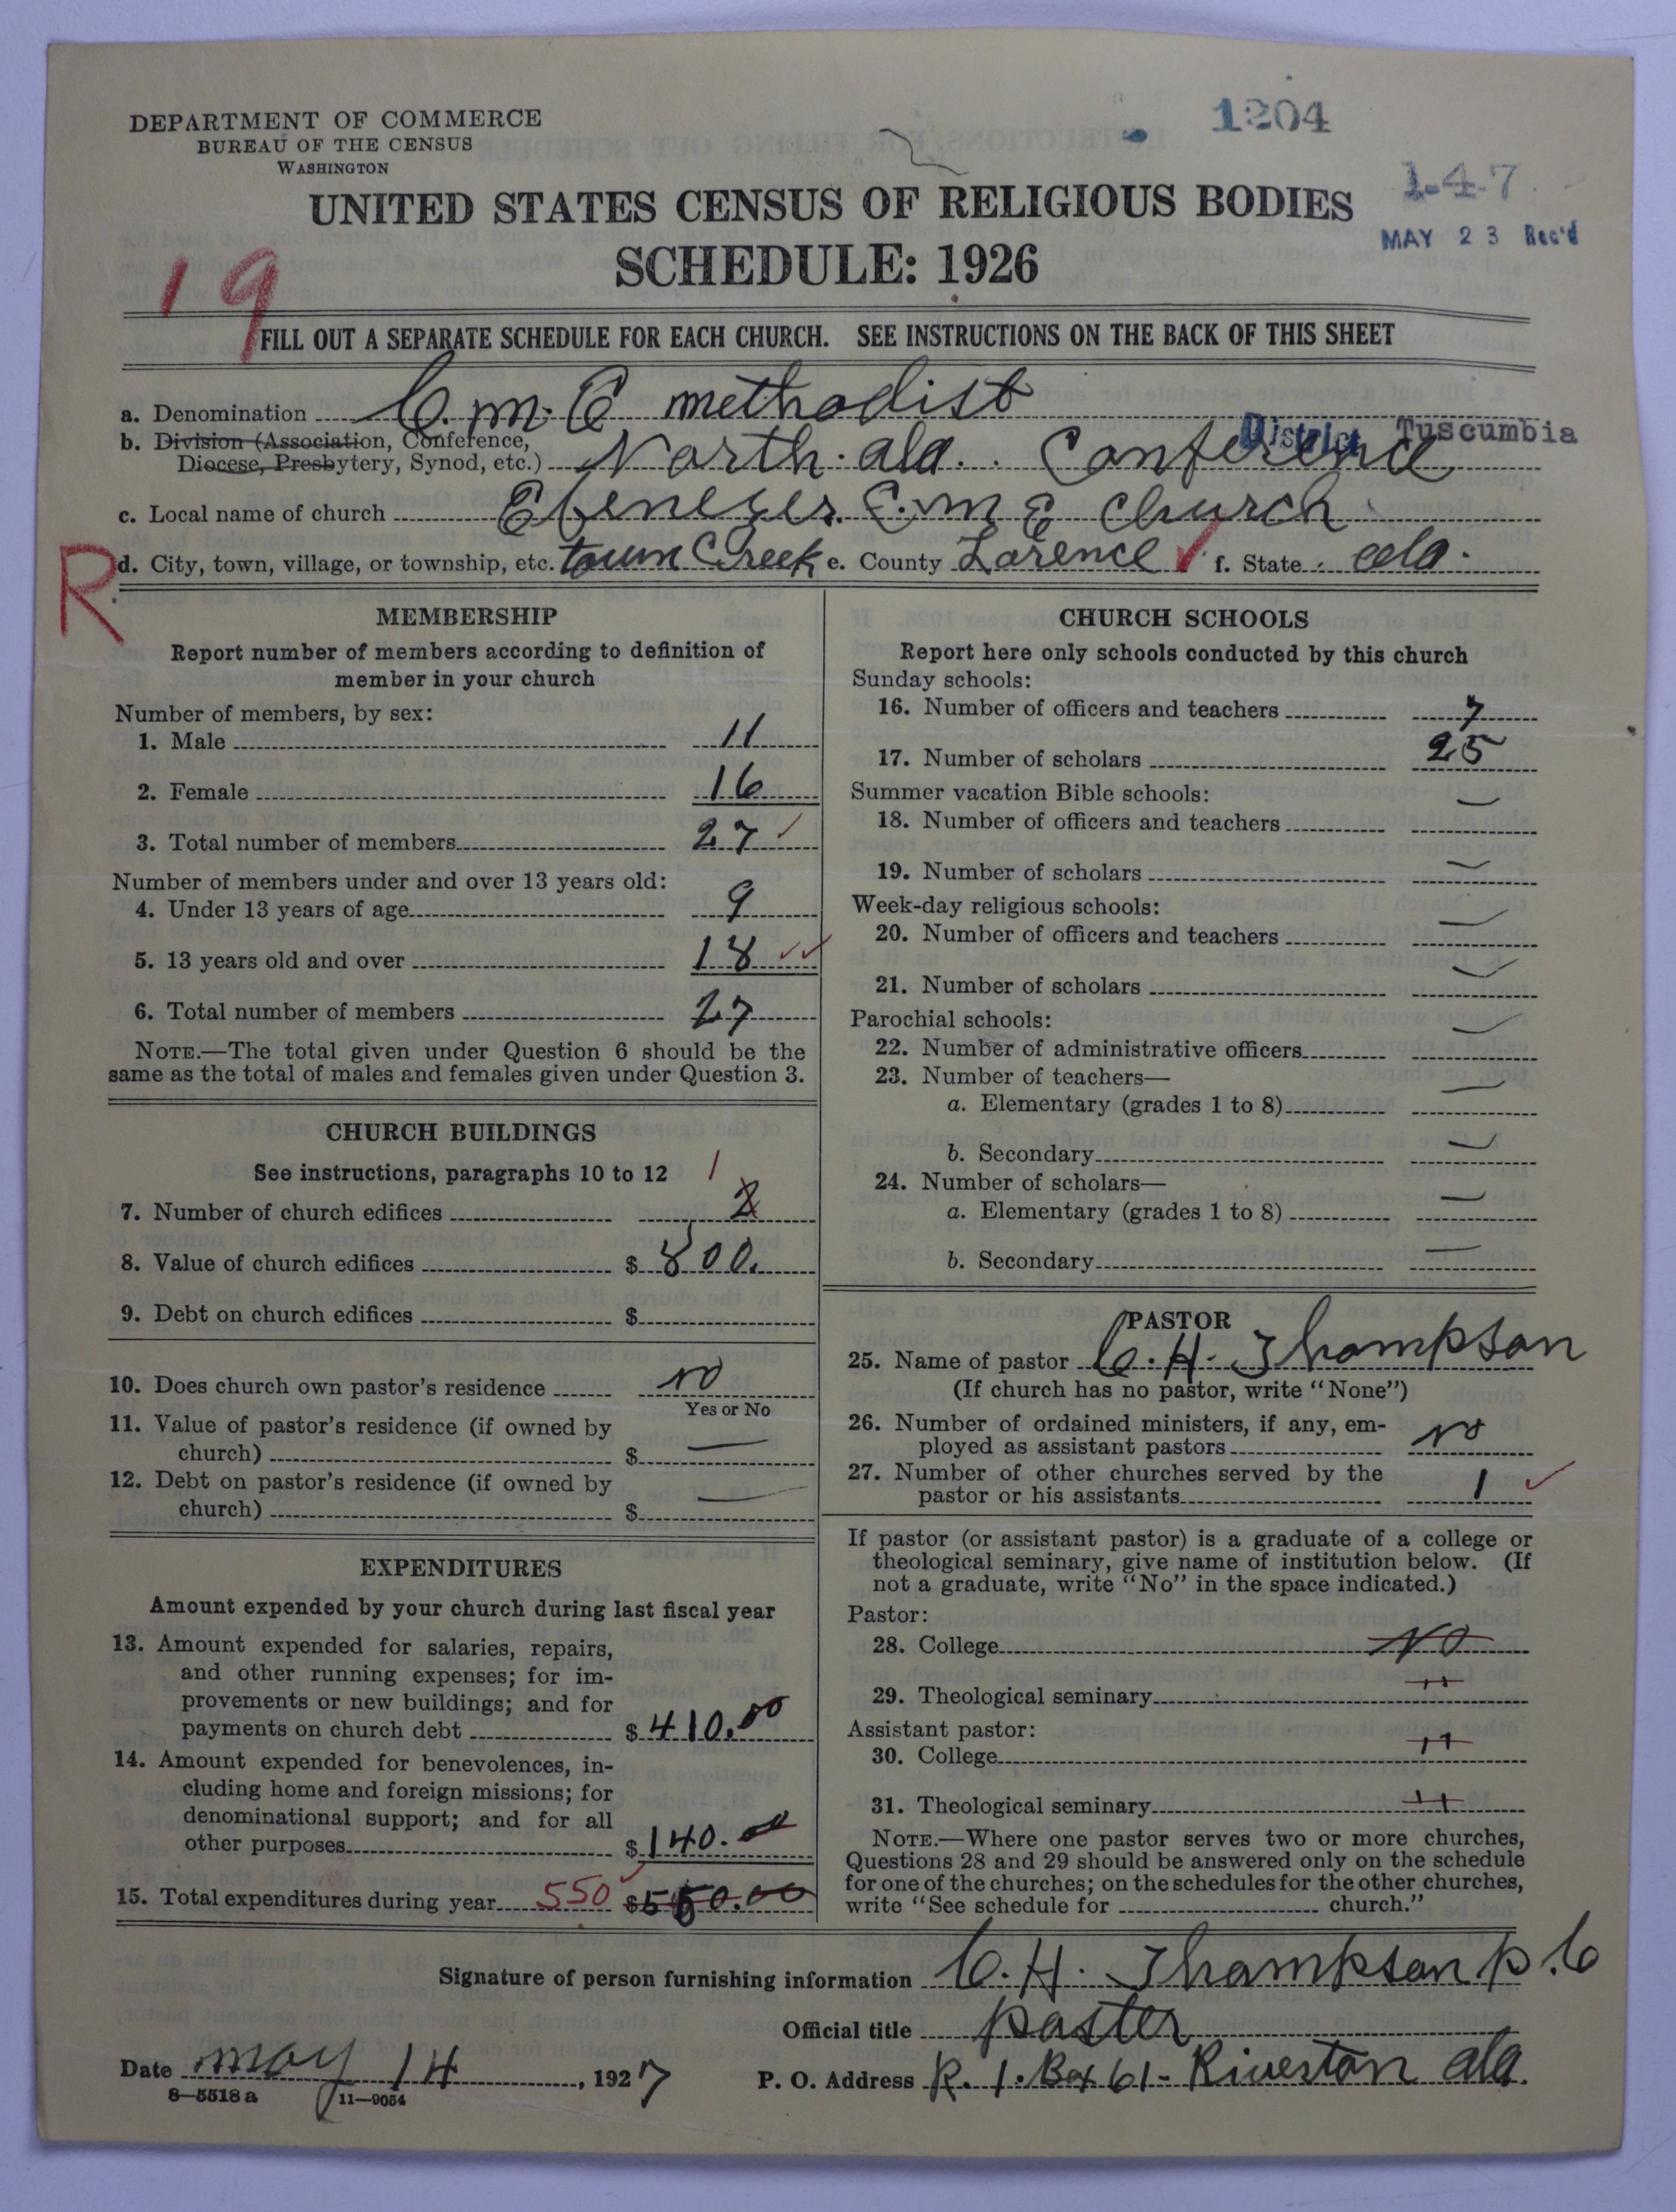 DEPARTMENT OF COMMERCE
BUREAU OF THE CENSUS
WASHINGTON
1204
1-47
MAY 23 Rec'd
UNITED STATES CENSUS OF RELIGIOUS BODIES
SCHEDULE: 1926
19
FILL OUT A SEPARATE SCHEDULE FOR EACH CHURCH. SEE INSTRUCTIONS ON THE BACK OF THIS SHEET
a. Denomination C. M. E methodist
District Tuscumbia
b. Division (Association, Conference,
Diocese, Presbytery, Synod, etc.) North. ala. Conference
c. Local name of church Ebenezer. C. M E Church
R
d. City, town, village, or township, etc. town Creek e. County Larence f. State ala.
MEMBERSHIP
Report number of members according to definition of
member in your church
Number of members, by sex:
1. Male 11
2. Female 16
3. Total number of members 27
Number of members under and over 13 years old:
4. Under 13 years of age 9
5. 13 years old and over 18
6. Total number of members 27
NOTE.—The total given under Question 6 should be the
same as the total of males and females given under Question 3.
CHURCH BUILDINGS
See instructions, paragraphs 10 to 12
1
7. Number of church edifices 2
8. Value of church edifices $ 800.
9. Debt on church edifices $
10. Does church own pastor's residence no
Yes or No
11. Value of pastor's residence (if owned by
church) $ —
12. Debt on pastor's residence (if owned by
church) $ —
EXPENDITURES
Amount expended by your church during last fiscal year
13. Amount expended for salaries, repairs,
and other running expenses; for im-
provements or new buildings; and for
payments on church debt $ 410.00
14. Amount expended for benevolences, in-
cluding home and foreign missions; for
denominational support; and for all
other purposes $ 140.00
15. Total expenditures during year 550 $ 550.00
CHURCH SCHOOLS
Report here only schools conducted by this church
Sunday schools:
16. Number of officers and teachers 7
17. Number of scholars 25
Summer vacation Bible schools:
18. Number of officers and teachers —
19. Number of scholars —
Week-day religious schools:
20. Number of officers and teachers —
21. Number of scholars —
Parochial schools:
22. Number of administrative officers —
23. Number of teachers—
a. Elementary (grades 1 to 8) —
b. Secondary —
24. Number of scholars—
a. Elementary (grades 1 to 8) —
b. Secondary —
PASTOR
25. Name of pastor C. H. Thompson
(If church has no pastor, write "None")
26. Number of ordained ministers, if any, em-
ployed as assistant pastors no
27. Number of other churches served by the
pastor or his assistants 1
If pastor (or assistant pastor) is a graduate of a college or
theological seminary, give name of institution below. (If
not a graduate, write "No" in the space indicated.)
Pastor:
28. College No
29. Theological seminary "
Assistant pastor:
30. College "
31. Theological seminary "
NOTE.—Where one pastor serves two or more churches,
Questions 28 and 29 should be answered only on the schedule
for one of the churches; on the schedules for the other churches,
write "See schedule for church."
Signature of person furnishing information C. H. Thompson p. C
Official title paster
Date may 14, 1927 P. O. Address R. 1. Box 61- Riverton ala.
8—5518 a 11—9054